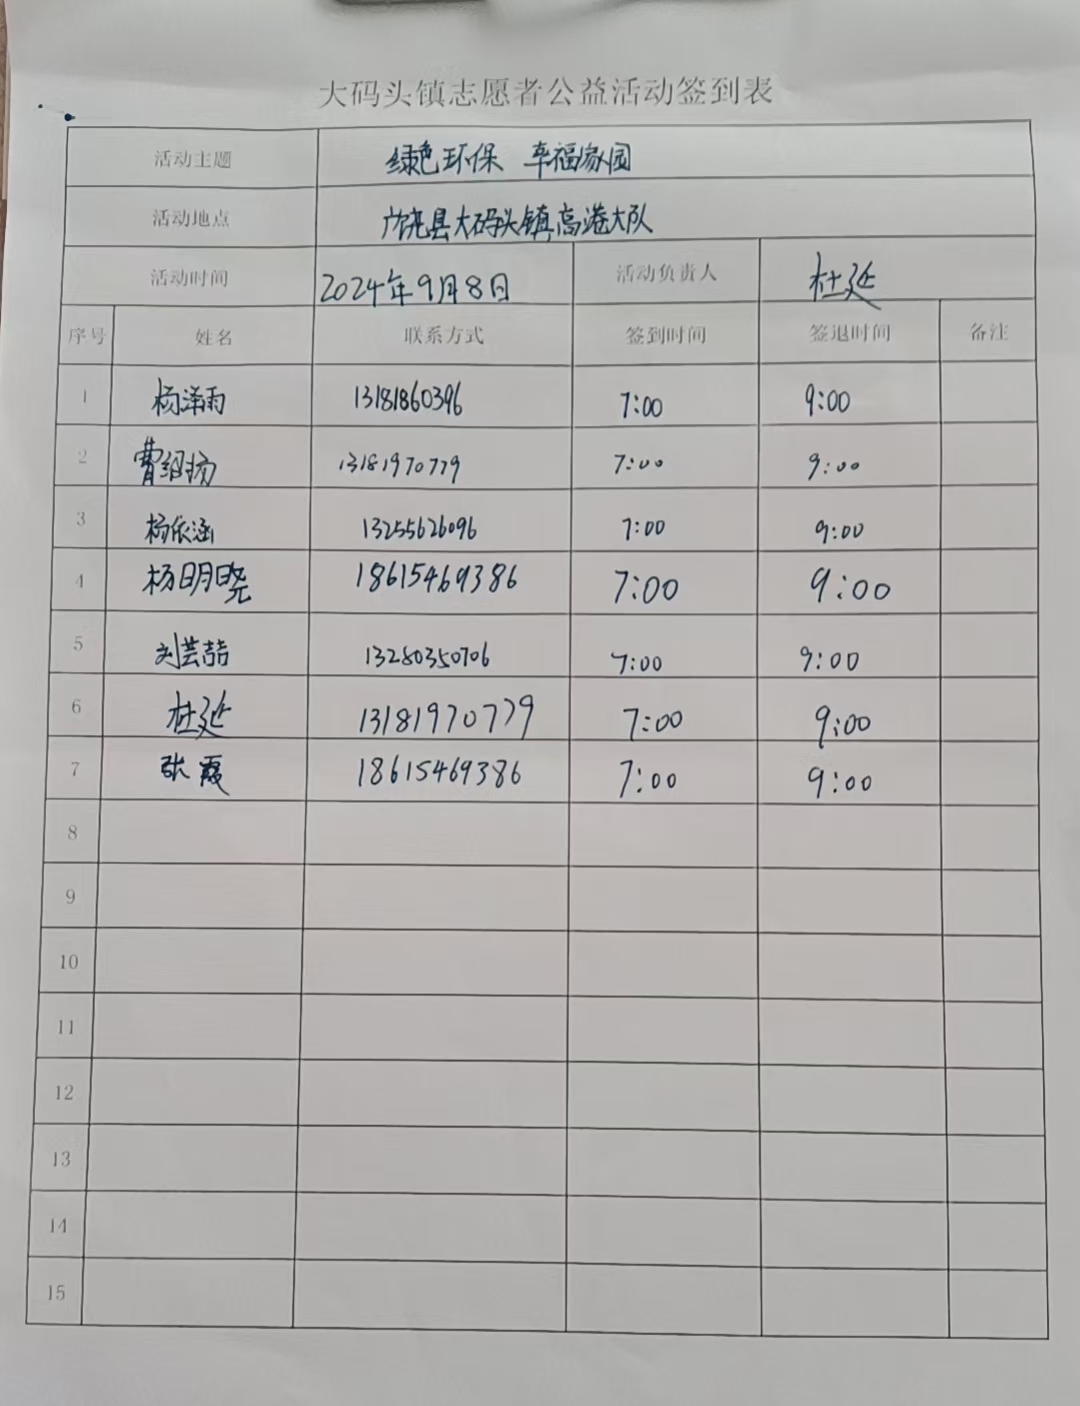 大码头镇志愿者公益活动签到表
活动主题 绿色环保 幸福家园
活动地点 广饶县大码头镇高港大队
活动时间 2024年9月8日 活动负责人 杜延
序号 姓名 联系方式 签到时间 签退时间 备注
1 杨泽雨 13181860396 7:00 9:00
2 曹绍扬 13181970779 7:00 9:00
3 杨依涵 13255626096 7:00 9:00
4 杨明晓 18615469386 7:00 9:00
5 刘芸喆 13280350706 7:00 9:00
6 杜延 13181970779 7:00 9:00
7 张霞 18615469386 7:00 9:00
8
9
10
11
12
13
14
15